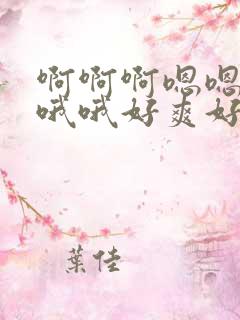 啊啊啊嗯嗯
哦哦好爽好
葉佳